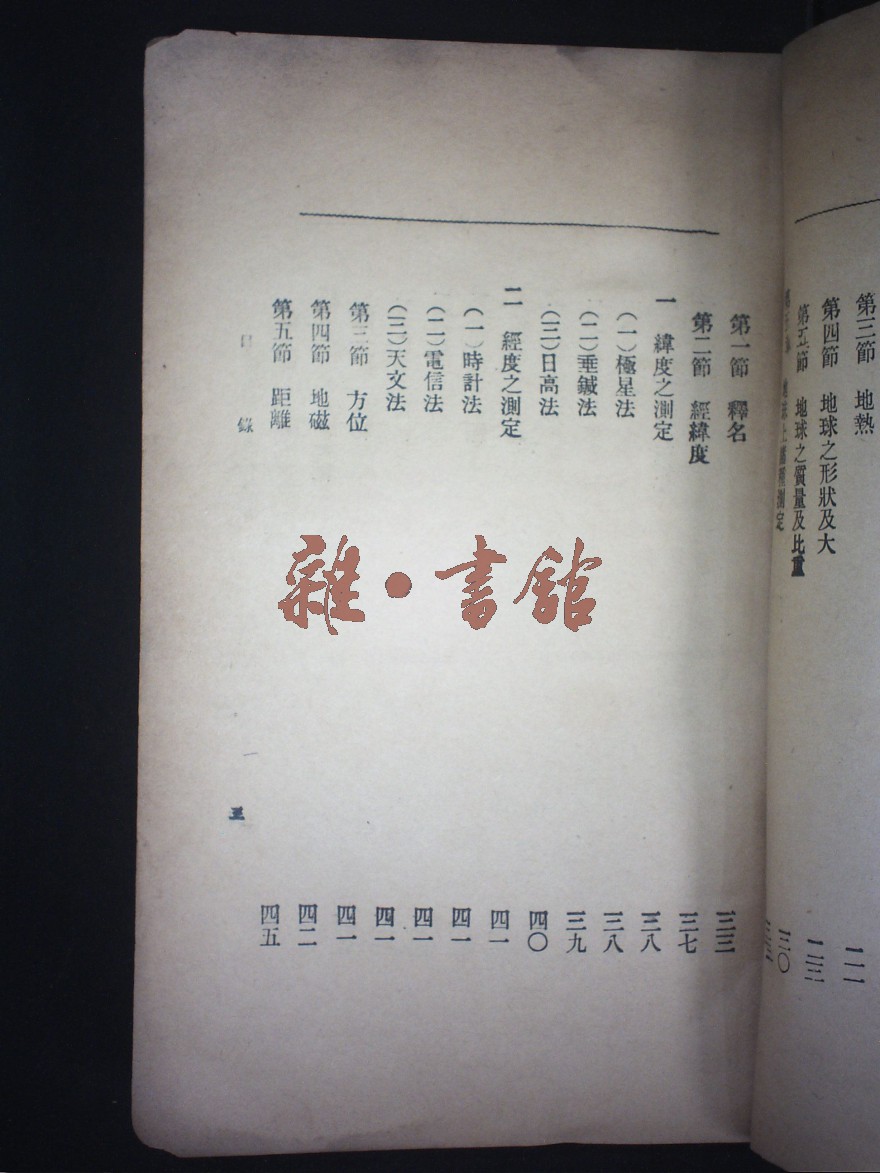 第三節　地熱　二一
第四節　地球之形狀及大
第五節　地球之質量及比重　三〇
測定
第一節　釋名　三三
第二節　經緯度　三七
一　緯度之測定　三八
（一）極星法　三八
（二）垂鍼法　三九
（三）日高法　四〇
二　經度之測定　四一
（一）時計法　四一
（二）電信法　四一
（三）天文法　四一
第三節　方位　四一
第四節　地磁　四二
第五節　距離　四五
目錄
三
雜・書館